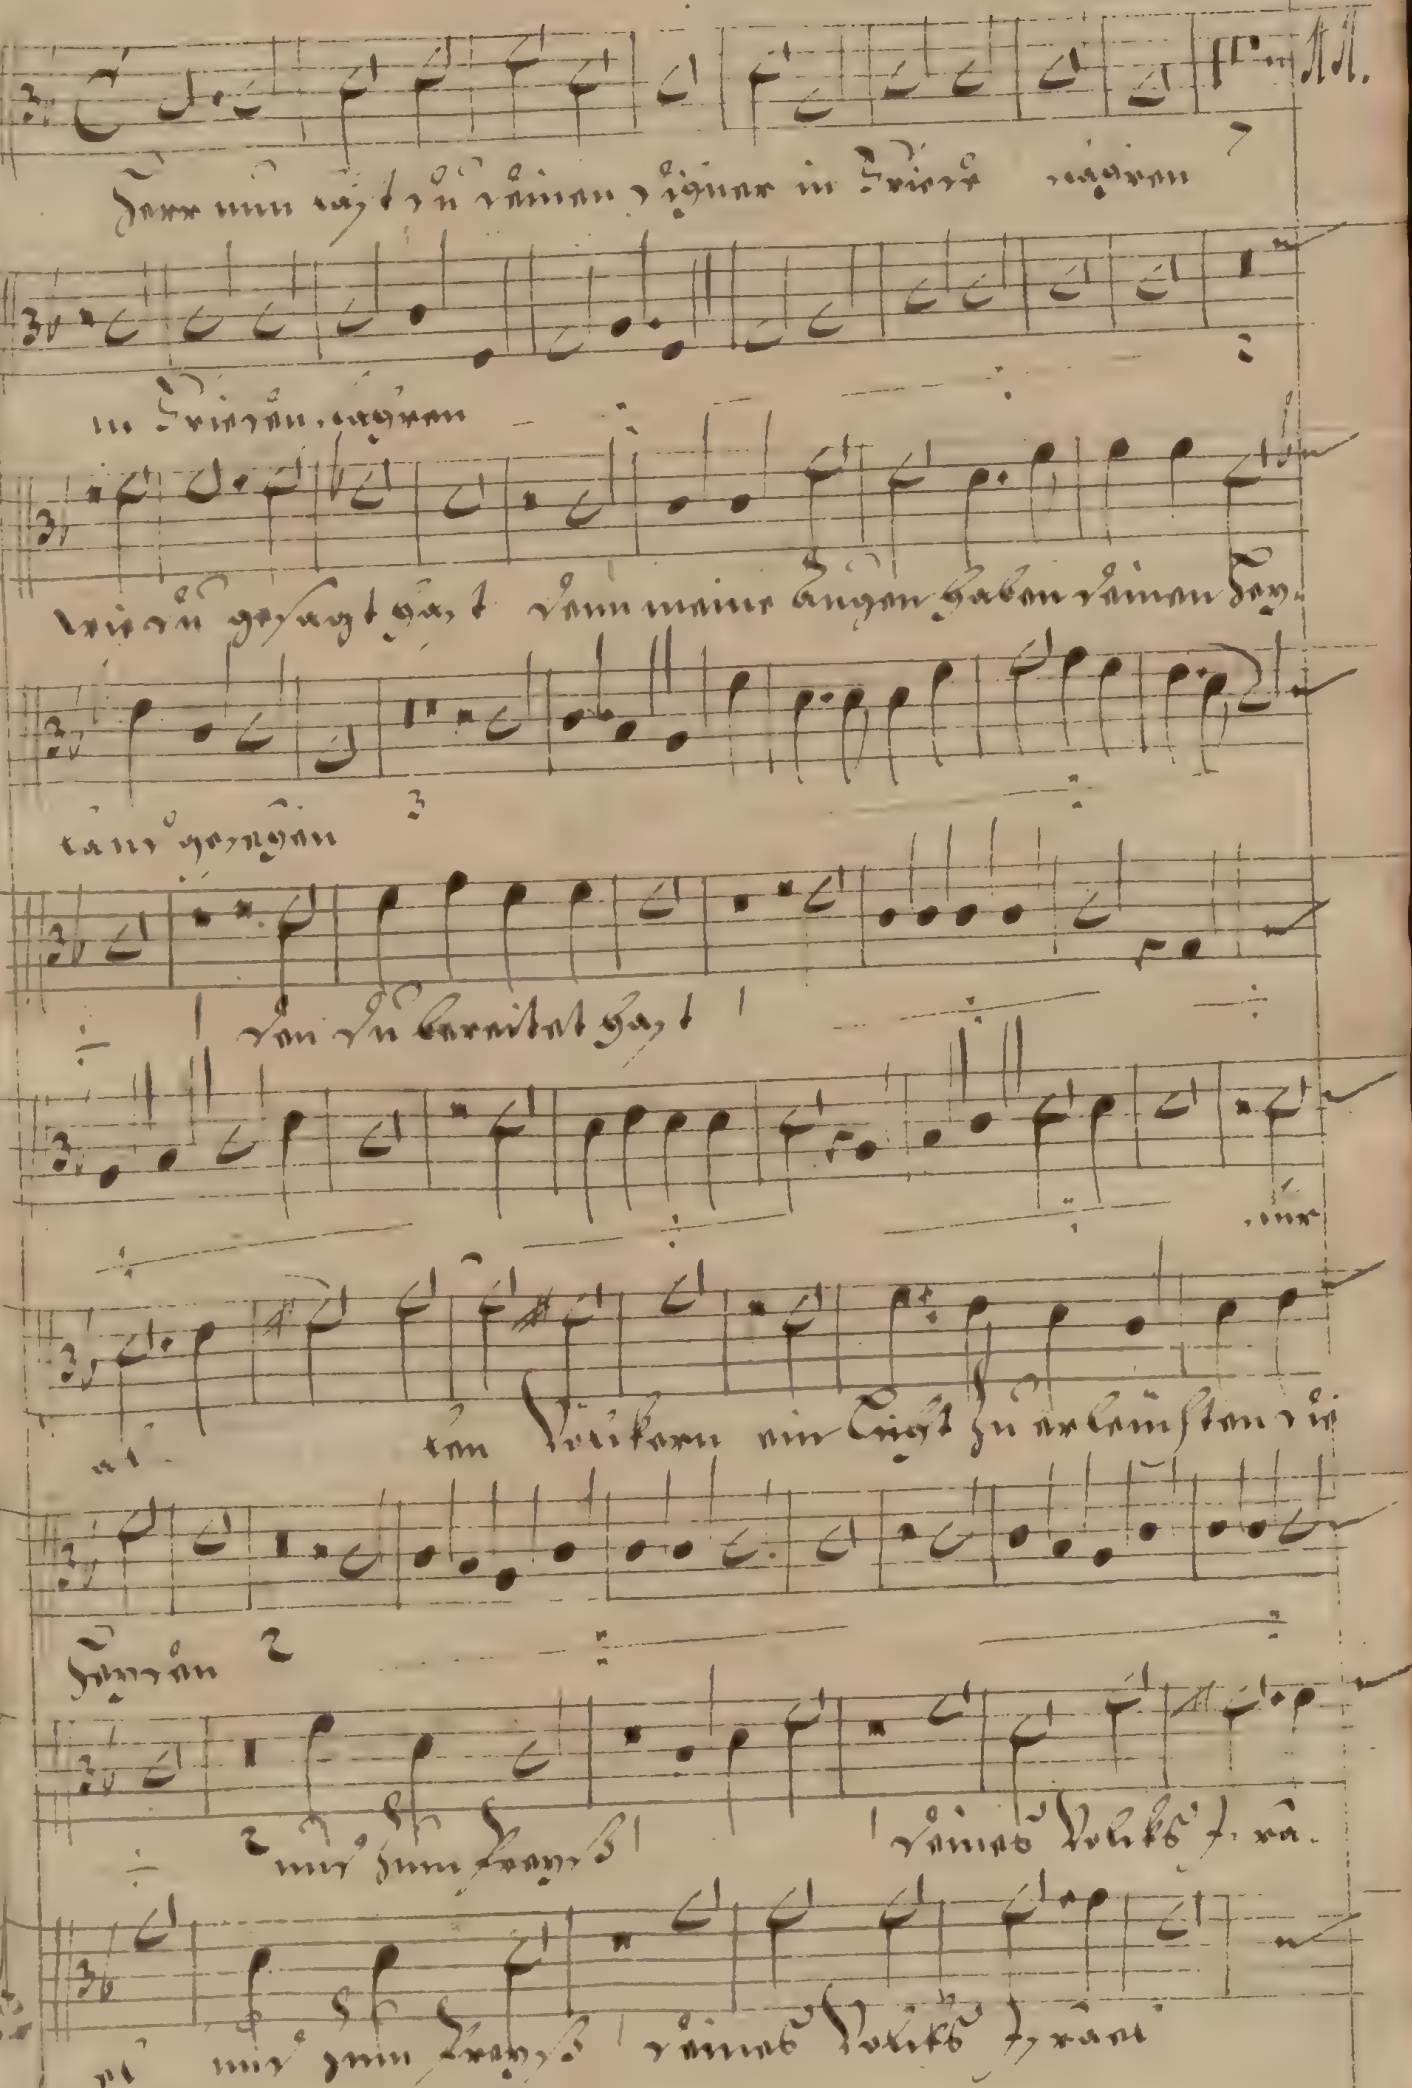 Herr nun läst du deinen diener in Friede fahren
in Frieden fahren
wie du gesagt hast denn meine Augen haben deinen Hey-
land gesehen 3
den du bereitet hast
für
al-len Völkern ein Licht zu erleuchten die
Heyden 2
2 und zum Preyß deines Volks Isra-
el und zum Preyß deines Volks Israel